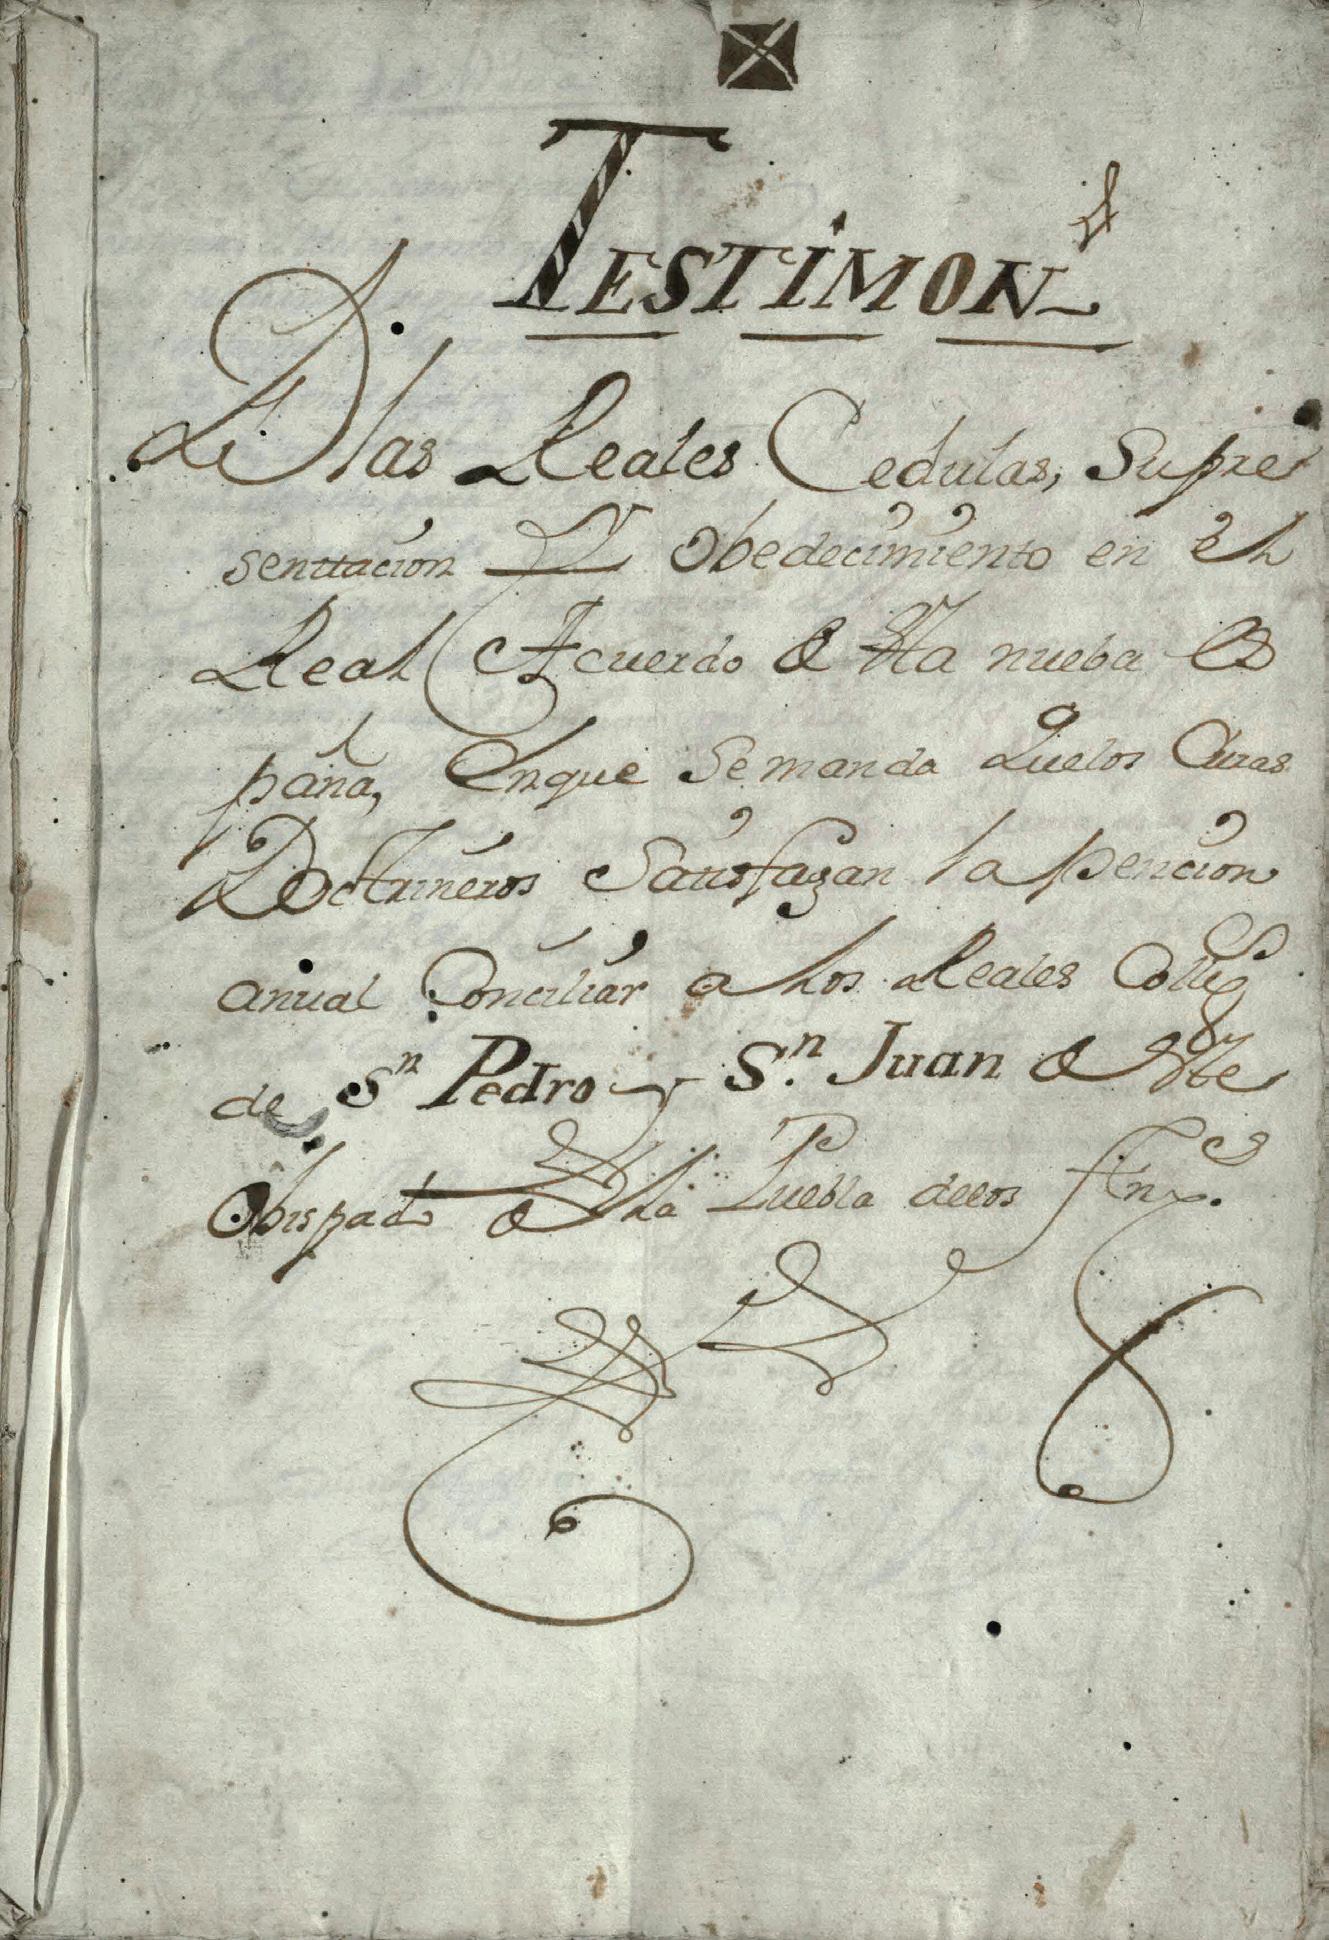 TESTIMON.º
De las Reales Cedulas, Supre
senttacion Y Obedecimiento en el
Real Acuerdo de Sta nueba Es
paña, Enque Semanda Quelos Curas
Doctrineros Satisfagan la pencion
anual Conciliar a los Reales Colleg.s
de Sn Pedro y S.n Juan de Ste
Obispado de la Puebla delos Ang.s